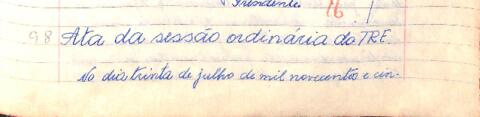 Presidente 16
98 Ata da sessão ordinária do TRE.
No dia trinta de julho de mil novecentos e cin-